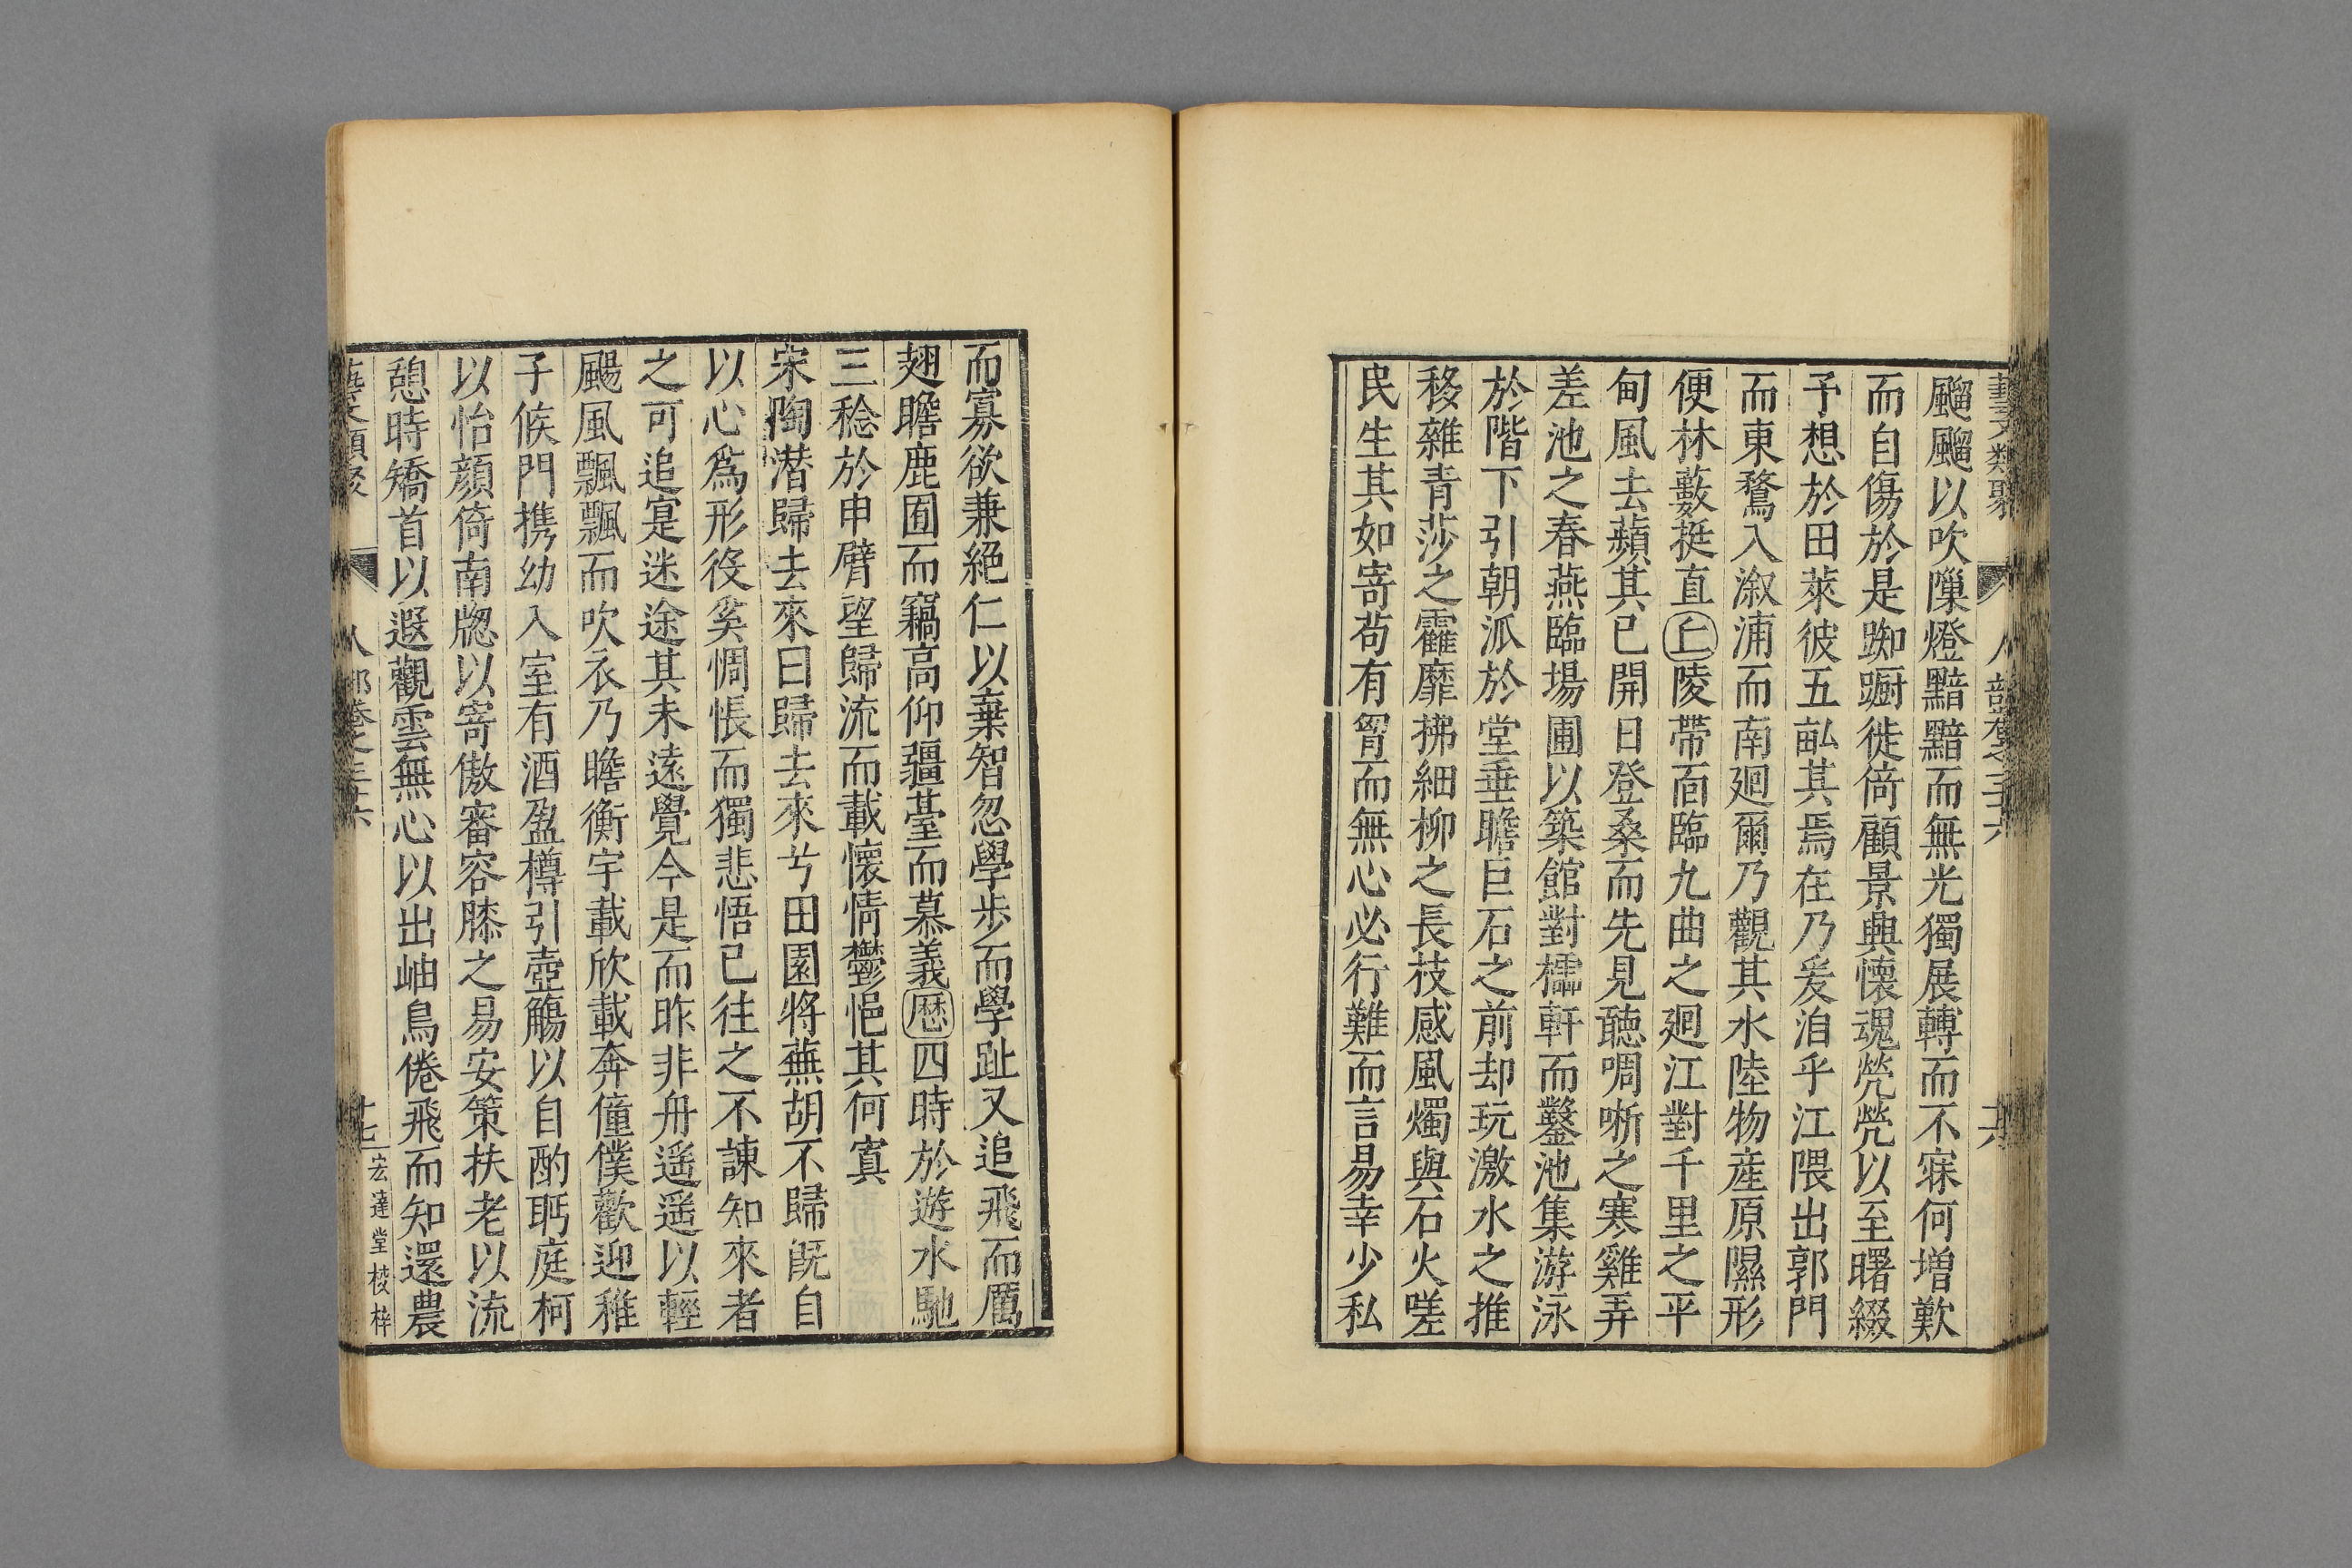 藝文類聚 人部卷之三十六 十六
飀飀以吹㬲燈黯黯而無光獨展轉而不寐何增歎
而自傷於是踟蹰徙倚顧景興懷魂煢煢以至曙綴
予想於田萊彼五畝其焉在乃爰洎乎江隈出郭門
而東騖入溆浦而南廻爾乃觀其水陸物産原隰形
便林藪挺直丘陵帶靣臨九曲之廻江對千里之平
甸風去蘋其已開日登桑而先見聴啁哳之寒雞弄
差池之春燕臨場圃以築館對櫺軒而鑿池集游泳
於階下引朝派於堂垂瞻巨石之前却玩激水之推
移雜青莎之靃靡拂細柳之長枝感風燭與石火嗟
民生其如寄苟有胷而無心必行難而言易幸少私
而寡欲兼絕仁以棄智忽學步而學趾又追飛而厲
翅瞻鹿囿而竊高仰疆䑓而慕義歷四時於遊水馳
三稔於申臂望歸流而載懷情鬱悒其何寘
宋陶潜歸去來曰歸去來兮田園將蕪胡不歸旣自
以心爲形役奚惆悵而獨悲悟已往之不諫知來者
之可追寔迷途其未遠覺今是而昨非舟遥遥以輕
颺風飄飄而吹衣乃瞻衡宇載欣載奔僮僕歡迎稚
子候門携幼入室有酒盈樽引壺觴以自酌眄庭柯
以怡顔倚南牕以寄傲審容膝之易安策扶老以流
憩時矯首以遐觀雲無心以出岫鳥倦飛而知還農
藝文類聚 人部卷之三十六 十七 宏達堂校梓